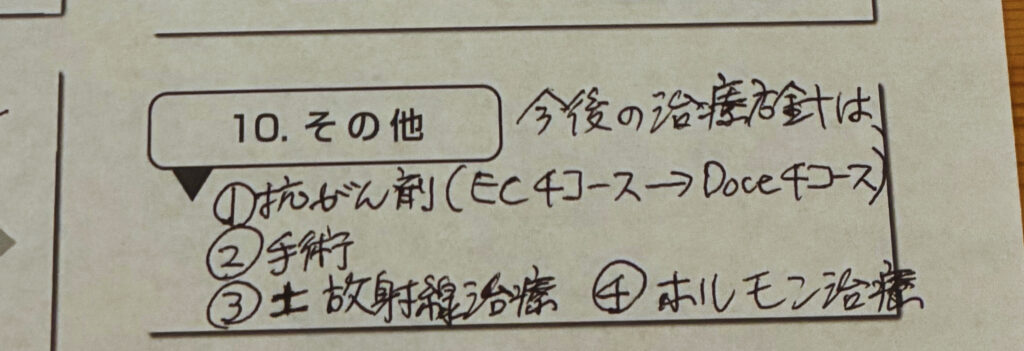 10. その他
今後の治療方針は、
①抗がん剤(EC4コース→Doce4コース)
②手術
③±放射線治療 ④ホルモン治療